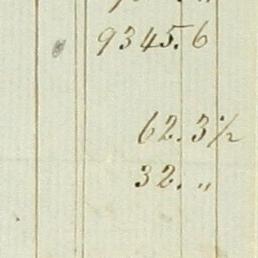 9345.6
62.3½
32. „